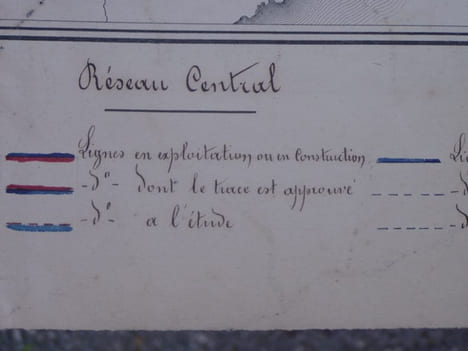 Réseau Central
Lignes en exploitation ou en Construction
-d°- dont le tracé est approuvé
-d°- a l'étude